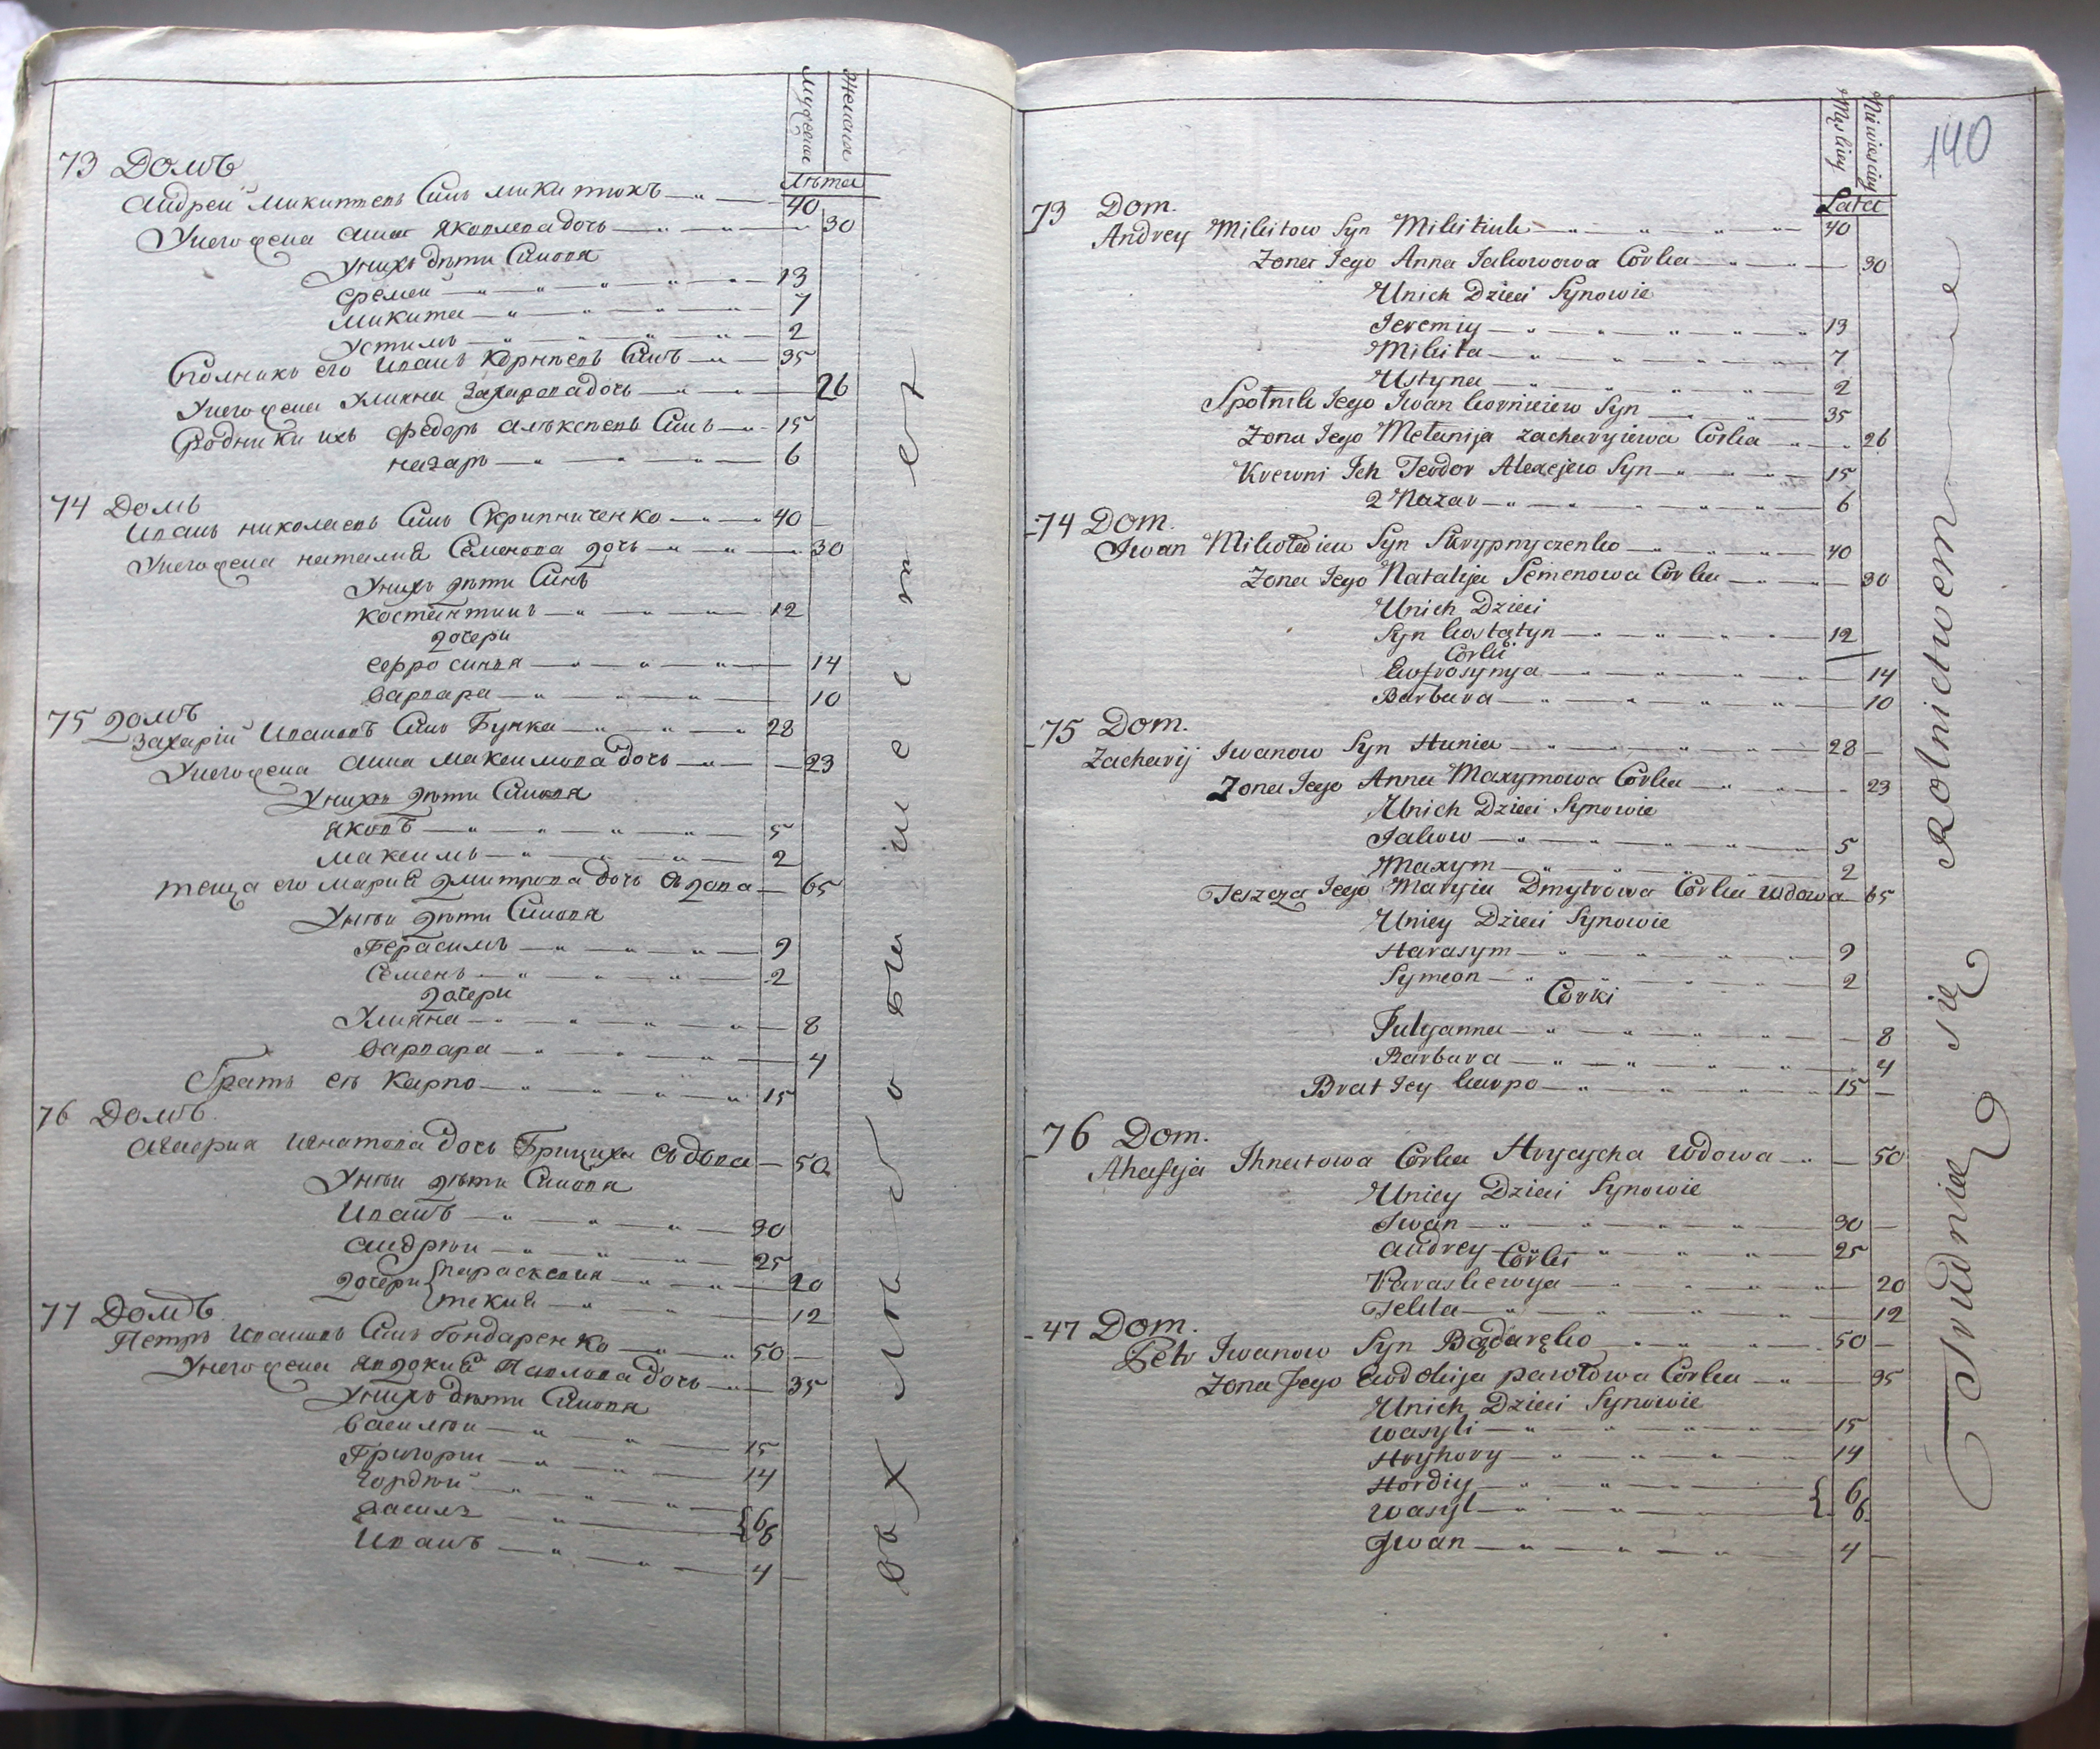 Мужеска
Женска
Лѣта
73 Домъ
Андрей Микитевъ Синъ Микитюкъ 40
Унего жена Анна Яковлева дочь 30
Унихъ дѣти Синовя
Еремей 13
Микита 7
Устимъ 2
Сполникъ его Иванъ Корнѣевъ Синъ 35
Унего жена Улияна Захарова дочь 26
Родники ихъ Федоръ Алѣксѣевъ Синъ 15
Назаръ 6
74 Домъ
Иванъ Николаевъ Синъ Скрипниченко 40
Унего жена Наталия Семенова дочь 30
Унихъ дѣти Синъ
Костентинъ 12
дочери
Ефросиния 14
Варвара 10
75 домъ
Захарій Ивановъ Синъ Гунка 28
Унего жена Анна Максимова дочь 23
Унихъ дѣти Синовя
Яковъ 5
Максимъ 2
Теща его Мария Дмитрова дочь Вдова 65
Унеи дѣти Синовя
Герасимъ 9
Семенъ 2
дочери
Улияна 8
Варвара 4
Братъ еѣ Карпо 15
76 Домъ
Игнатова дочь Грициха Вдова 50
Унеи дѣти Синовя
Иванъ 30
Андрѣи 25
дочери { Параскевия 20
Текия 12
77 Домъ
Петръ Ивановъ Синъ Бондаренко 50
Унего жена Явдокия Павлова дочь 35
Унихъ дѣти Синовя
Василѣи 15
Григорѣи 14
Гордѣй { 6
Василъ 6
Иванъ 4
въ хлѣбопашестве
140
Męskiey
Niewiesciey
Lata
73 Dom.
Andrey Mikitow Syn Mikitiuk 40
Zona Jego Anna Jakowowa Corka 30
Unich Dzieci Synowie
Jeremiy 13
Mikita 7
Ustyna 2
Społnik Jego Iwan Korniciew Syn 35
Zona Jego Melanija Zacharyjewa Corka 26
Krewni Ich Teodor Alexejew Syn 15
2 Nazar 6
74 Dom.
Iwan Mikołaiew Syn Skrypnyczenko 40
Zona Jego Natalija Semenowa Corka 30
Unich Dzieci
Syn Kostątyn 12
Corki
Eufrosynya 14
Barbara 10
75 Dom.
Zacharij Iwanow Syn Hunka 28
Zona Jego Anna Maxymowa Corka 23
Unich Dzieci Synowie
Jakow 5
Maxym 2
Teszcza Jego Maryia Dmytrowa Corka Wdowa 65
Uniey Dzieci Synowie
Harasym 9
Symeon 2
Corki
Julyanna 8
Barbara 4
Brat Jey Karpo 15
76 Dom.
Ahafija Ihnatowa Corka Hrycycha Wdowa 50
Uniey Dzieci Synowie
Iwan 30
Andrey 25
Corki
Paraskewya 20
Tekla 12
47 Dom.
Petr Iwanow Syn Bądaręko 50
Zona Jego Eudokija Pawłowa Corka 35
Unich Dzieci Synowie
Wasyli 15
Hryhory 14
Hordiy { 6
Wasyl 6
Iwan 4
Trudnią się Rolnictwem